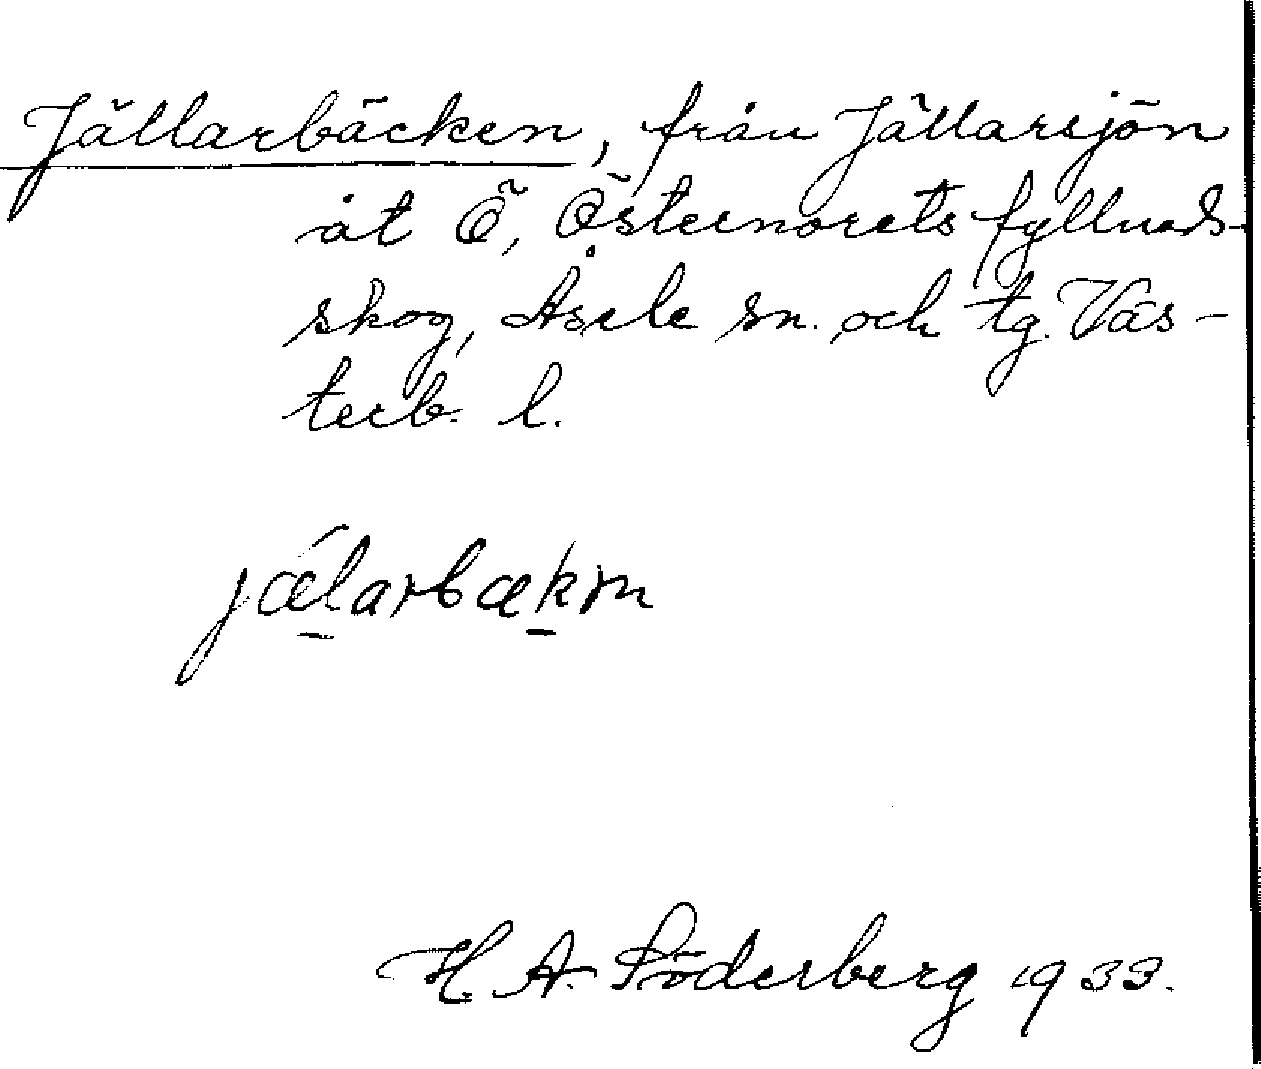 Jällarbäcken, från Jällarsjön
åt Ö, Östernorets fyllnads-
skog, Åsele sn. och tg. Väs-
terb. l.
jǽlarbækm
H. A. Söderberg 1933.